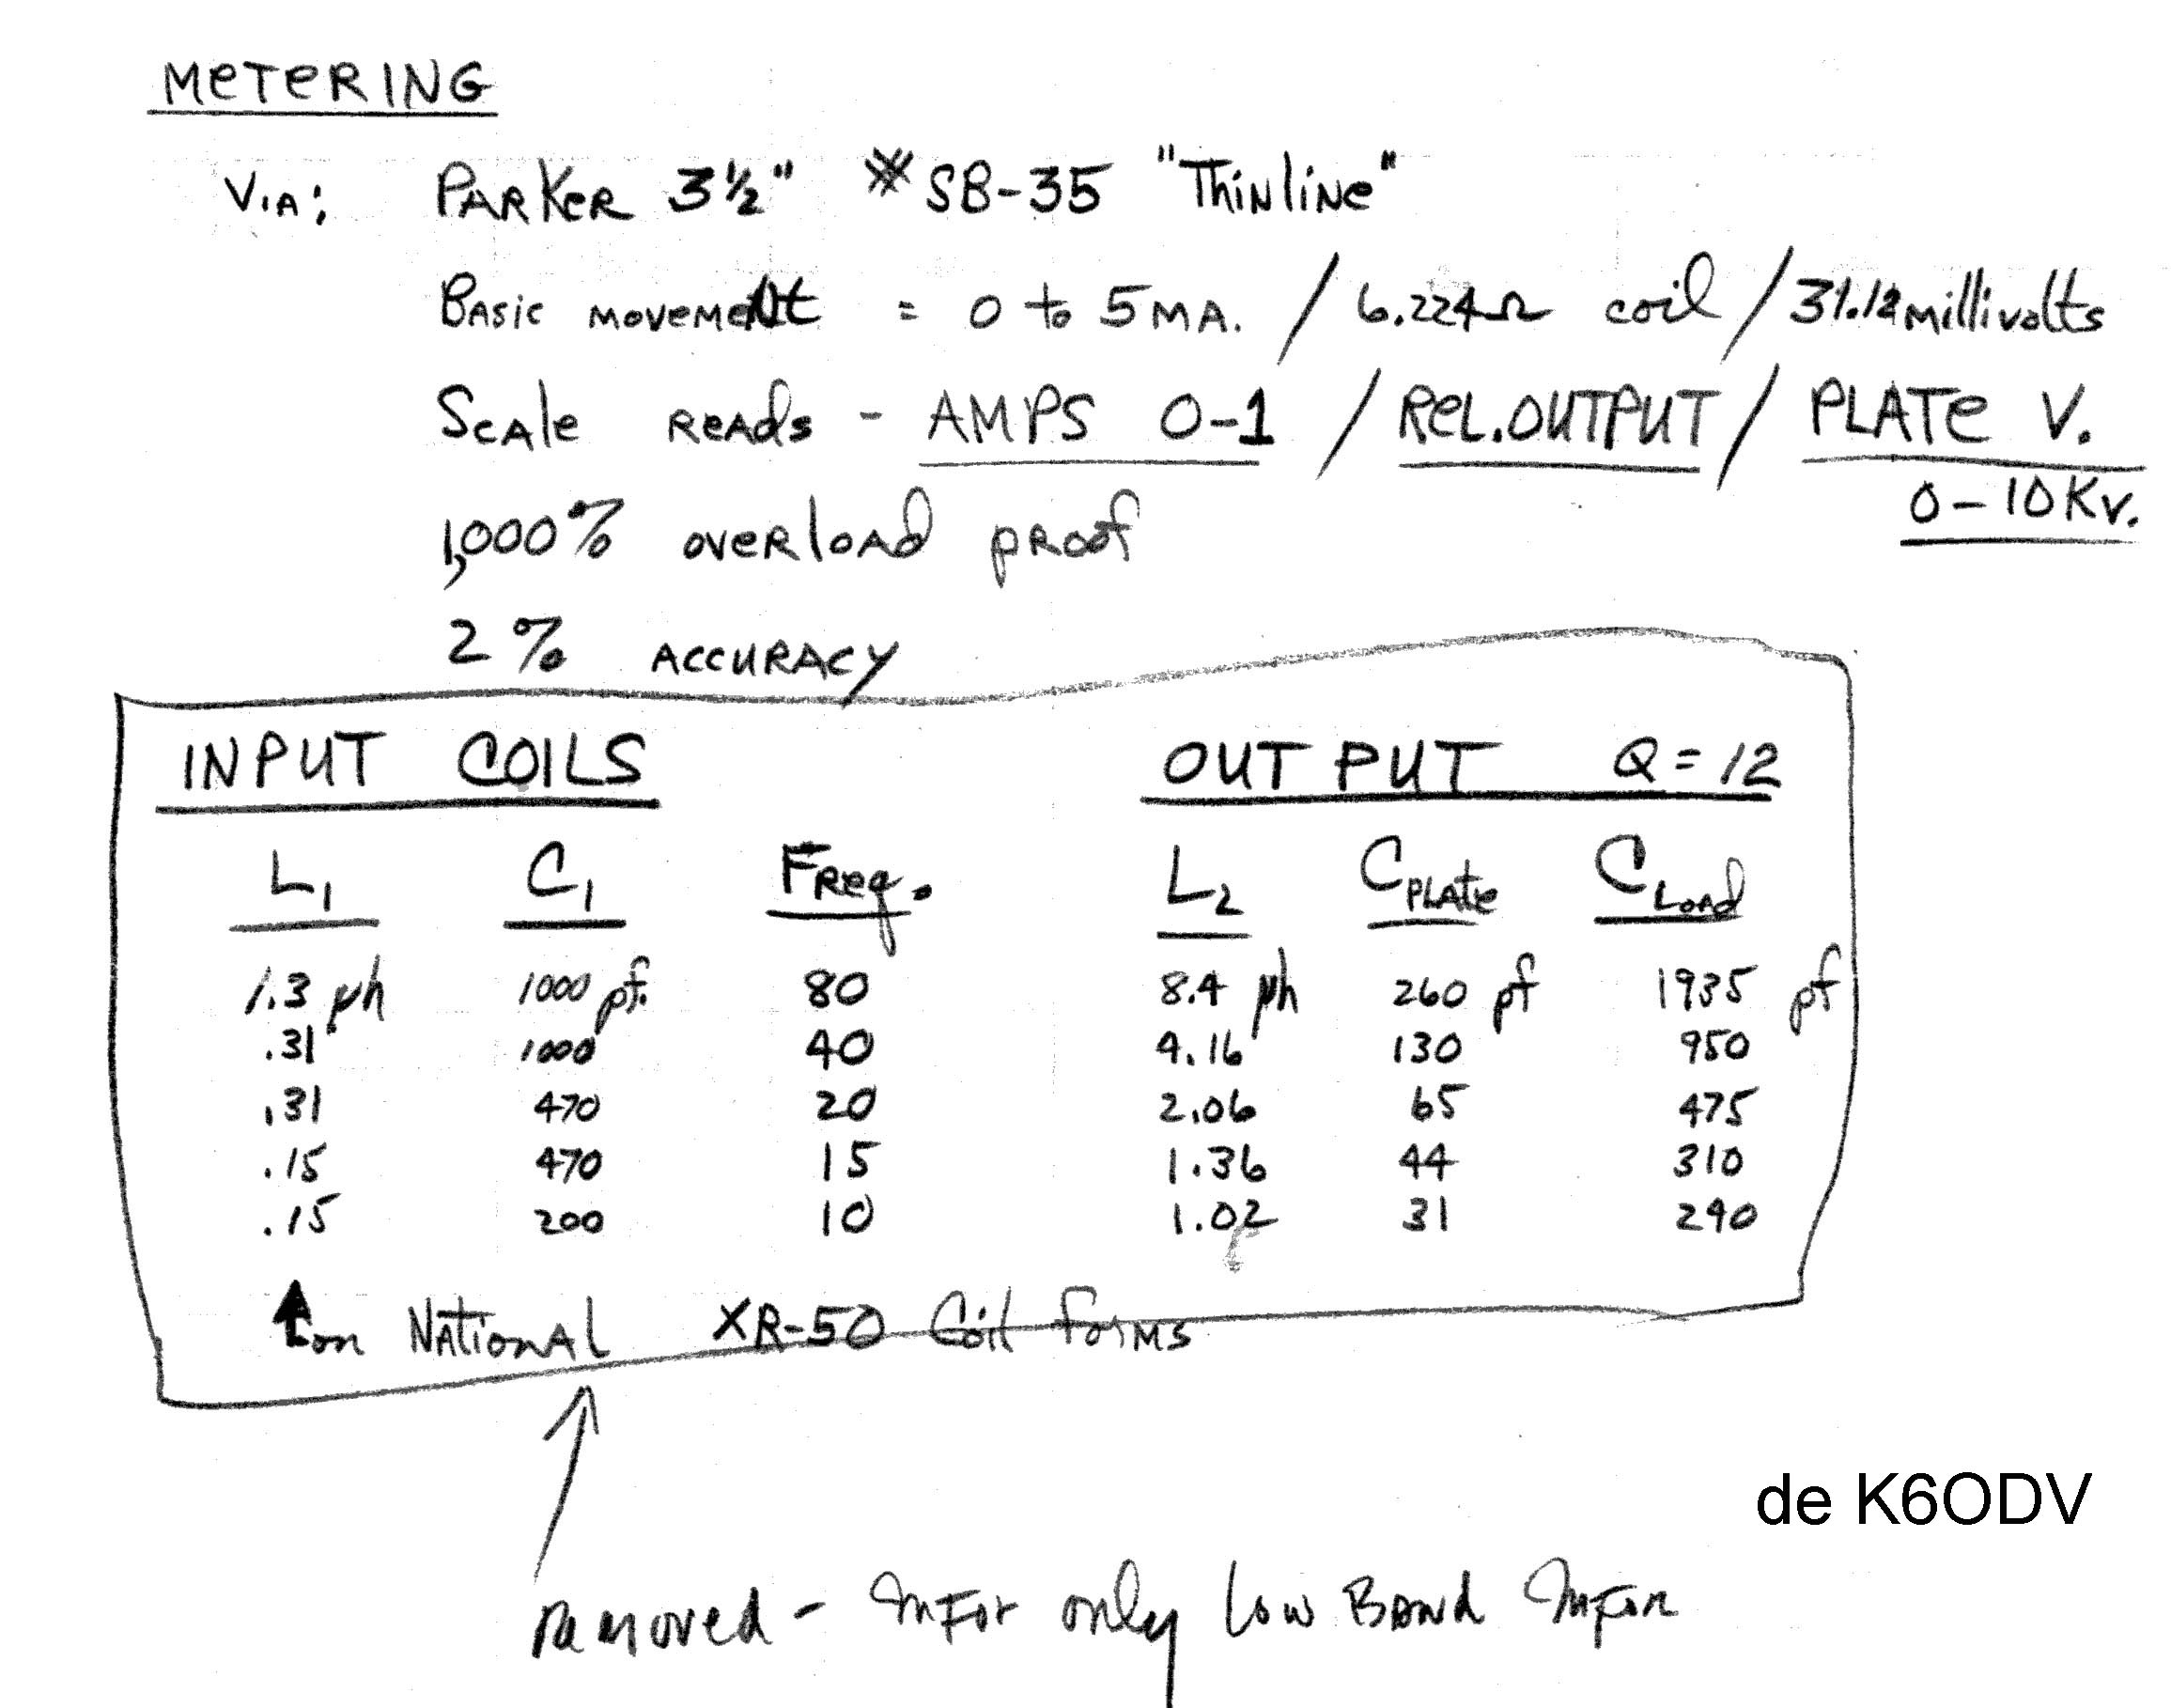 METERING
VIA: PARKER 3½" # SB-35 "Thinline"
BASIC MOVEMENt = 0 to 5 MA. / 6.224Ω coil / 31.12 millivolts
SCAle READS - AMPS 0-1 / REL.OUTPUT / PLATE V.
0-10 KV.
1,000% OVERLOAD PROOF
2% ACCURACY
INPUT COILS OUTPUT Q=12
L1 C1 FREQ. L2 CPLATE CLOAD
1.3 µh 1000 pf. 80 8.4 µh 260 pf 1935 pf
.31 1000 40 4.16 130 950
.31 470 20 2.06 65 475
.15 470 15 1.36 44 310
.15 200 10 1.02 31 240
on NATIONAL XR-50 Coil forms
de K6ODV
removed - only low BAND